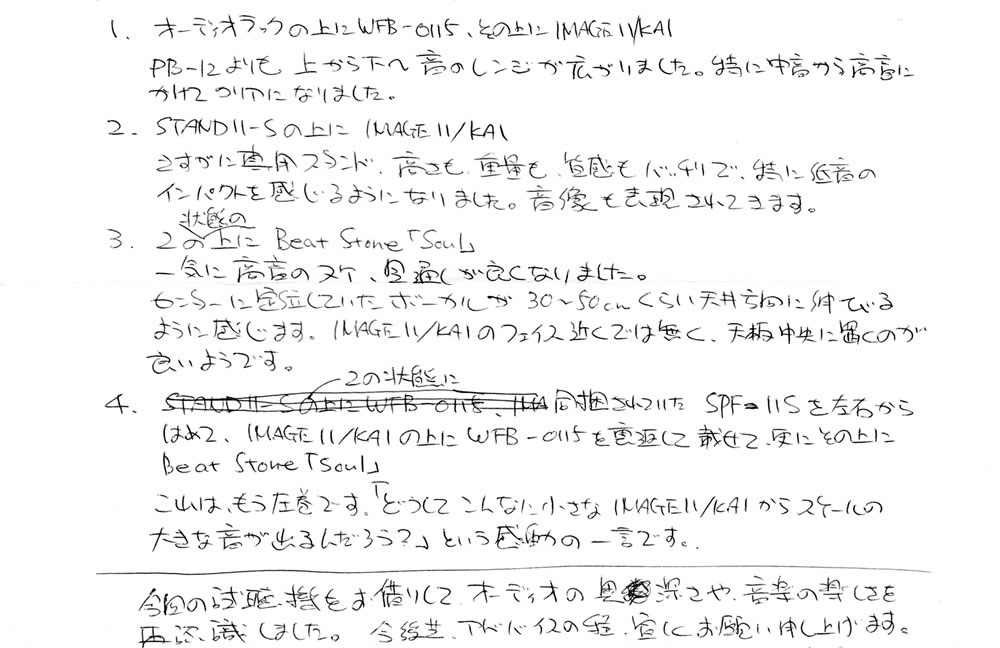 1. オーディオラックの上にWFB-0115、その上にIMAGE11/KAI
PB-12よりも上から下へ音のレンジが広がりました。特に中音から高音に
かけてクリアになりました。
2. STAND11-Sの上に IMAGE11/KAI
さすがに専用スタンド、高さも、重量も、質感もバッチリで、特に低音の
インパクトを感じるようになりました。音像も表現されてきます。
状態の
3. 2の上に Beat Stone「Soul」
一気に高音のヌケ、見通しが良くなりました。
センターに定位していたボーカルが 30〜50cmくらい天井方向に伸びる
ように感じます。IMAGE11/KAIのフェイス近くでは無く、天板中央に置くのが
良いようです。
2の状態に
4. STAND11-Sの上にWFB-0115、IMA同梱されていた SPF-11Sを左右から
はめて、IMAGE11/KAIの上にWFB-0115を裏返して載せて、更にその上に
Beat Stone「Soul」
これは、もう圧巻です。「どうしてこんなに小さなIMAGE11/KAIからスケールの
大きな音が出るんだろう？」という感動の一言です。
今回の試聴機をお借りして、オーディオの奥深さや、音楽の楽しさを
再認識しました。今後共、アドバイスの程、宜しくお願い申し上げます。